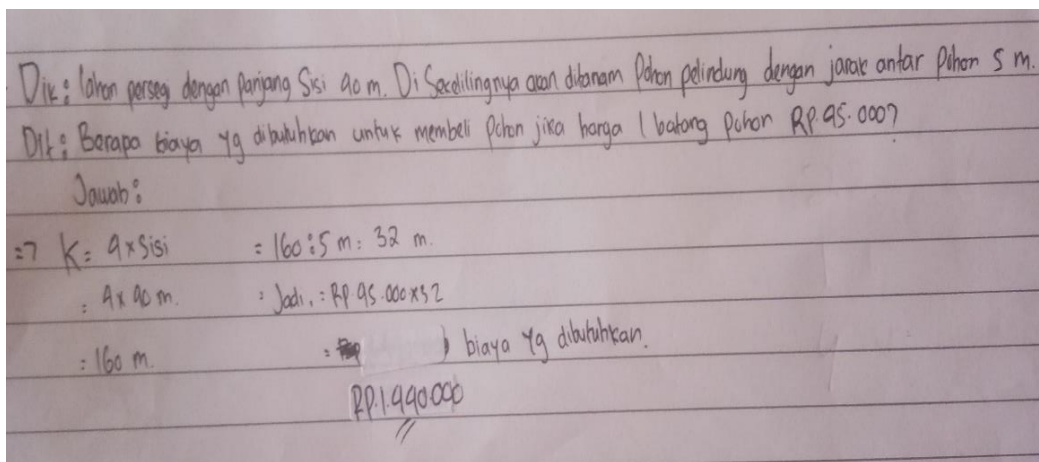 Dik : lahan persegi dengan panjang Sisi 40 m. Di Sekelilingnya akan ditanam Pohon pelindung dengan jarak antar Pohon 5 m.
Dit : Berapa biaya yg dibutuhkan untuk membeli Pohon jika harga 1 batang pohon RP.45.000?
Jawab :
=> K = 4 x Sisi = 160 : 5 m = 32 m.
= 4 x 40 m. = Jadi, = RP.45.000 x 32
= 160 m. = ) biaya yg dibutuhkan.
RP.1.440.000